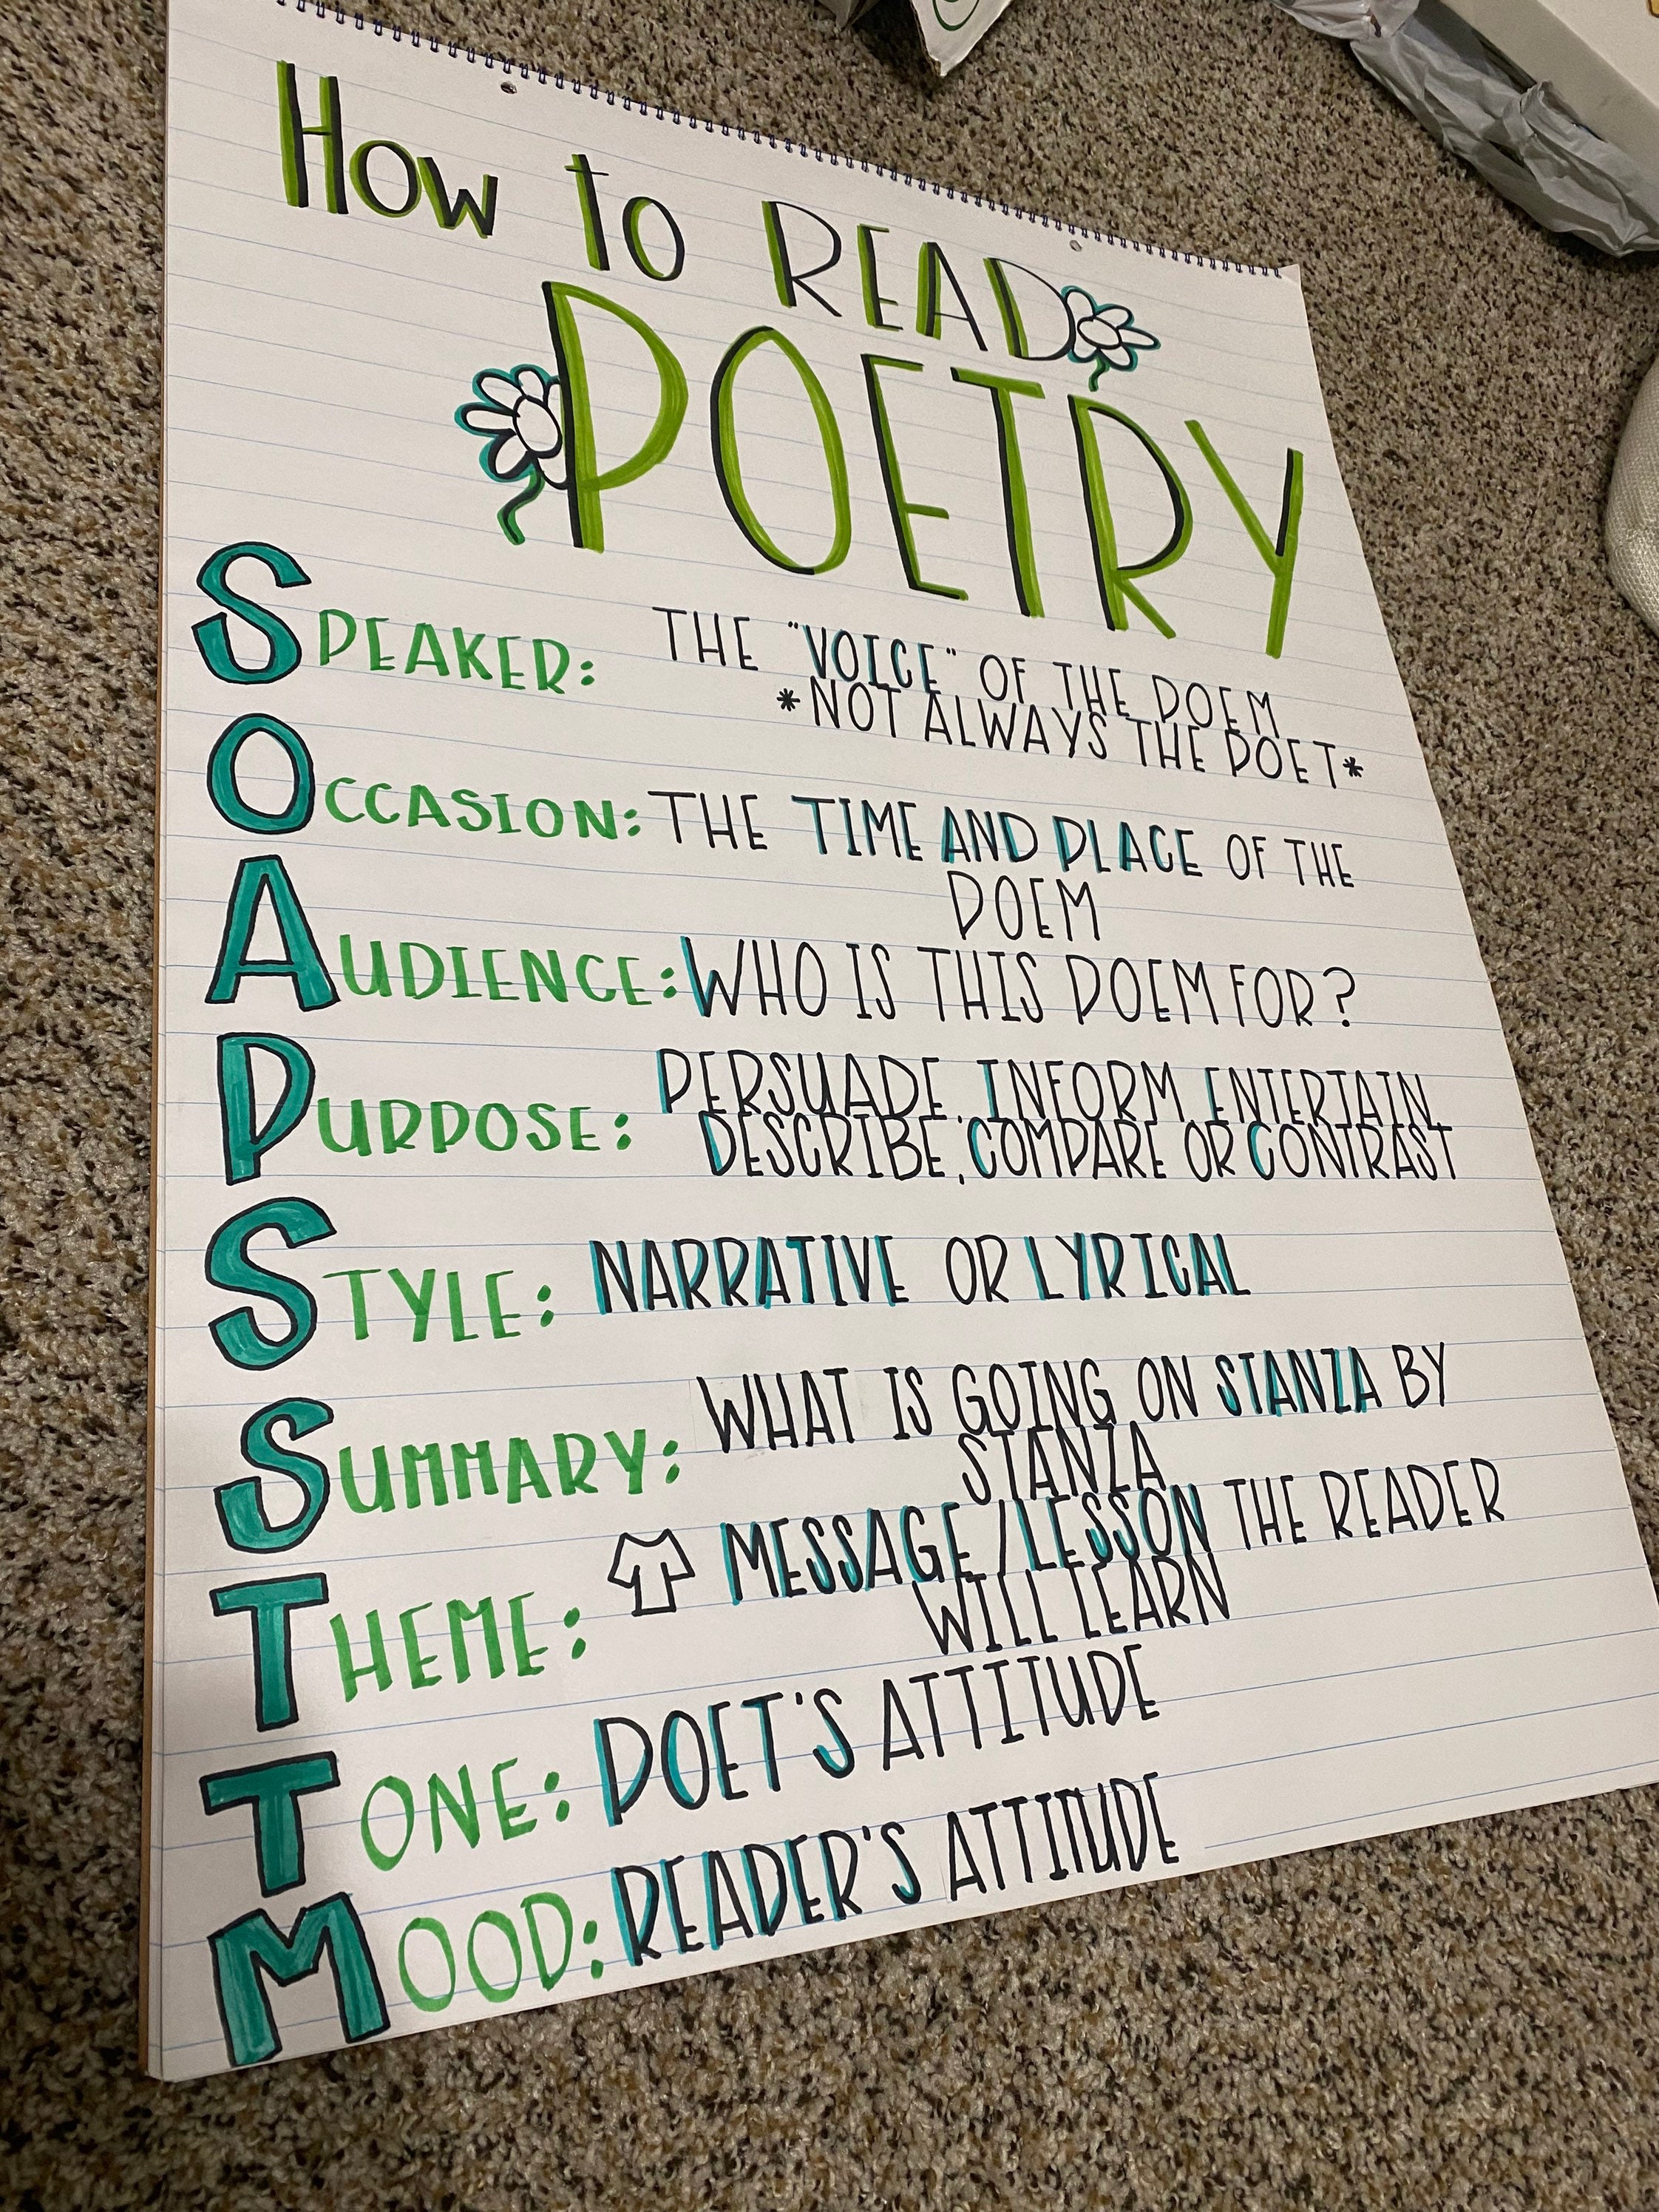 How to READ
POETRY
SPEAKER: THE "VOICE" OF THE POEM
*NOT ALWAYS THE POET*
OCCASION: THE TIME AND PLACE OF THE
POEM
AUDIENCE: WHO IS THIS POEM FOR?
PURPOSE: PERSUADE, INFORM, ENTERTAIN,
DESCRIBE, COMPARE OR CONTRAST
STYLE: NARRATIVE OR LYRICAL
SUMMARY: WHAT IS GOING ON STANZA BY
STANZA
THEME: MESSAGE/LESSON THE READER
WILL LEARN
TONE: POET'S ATTITUDE
MOOD: READER'S ATTITUDE